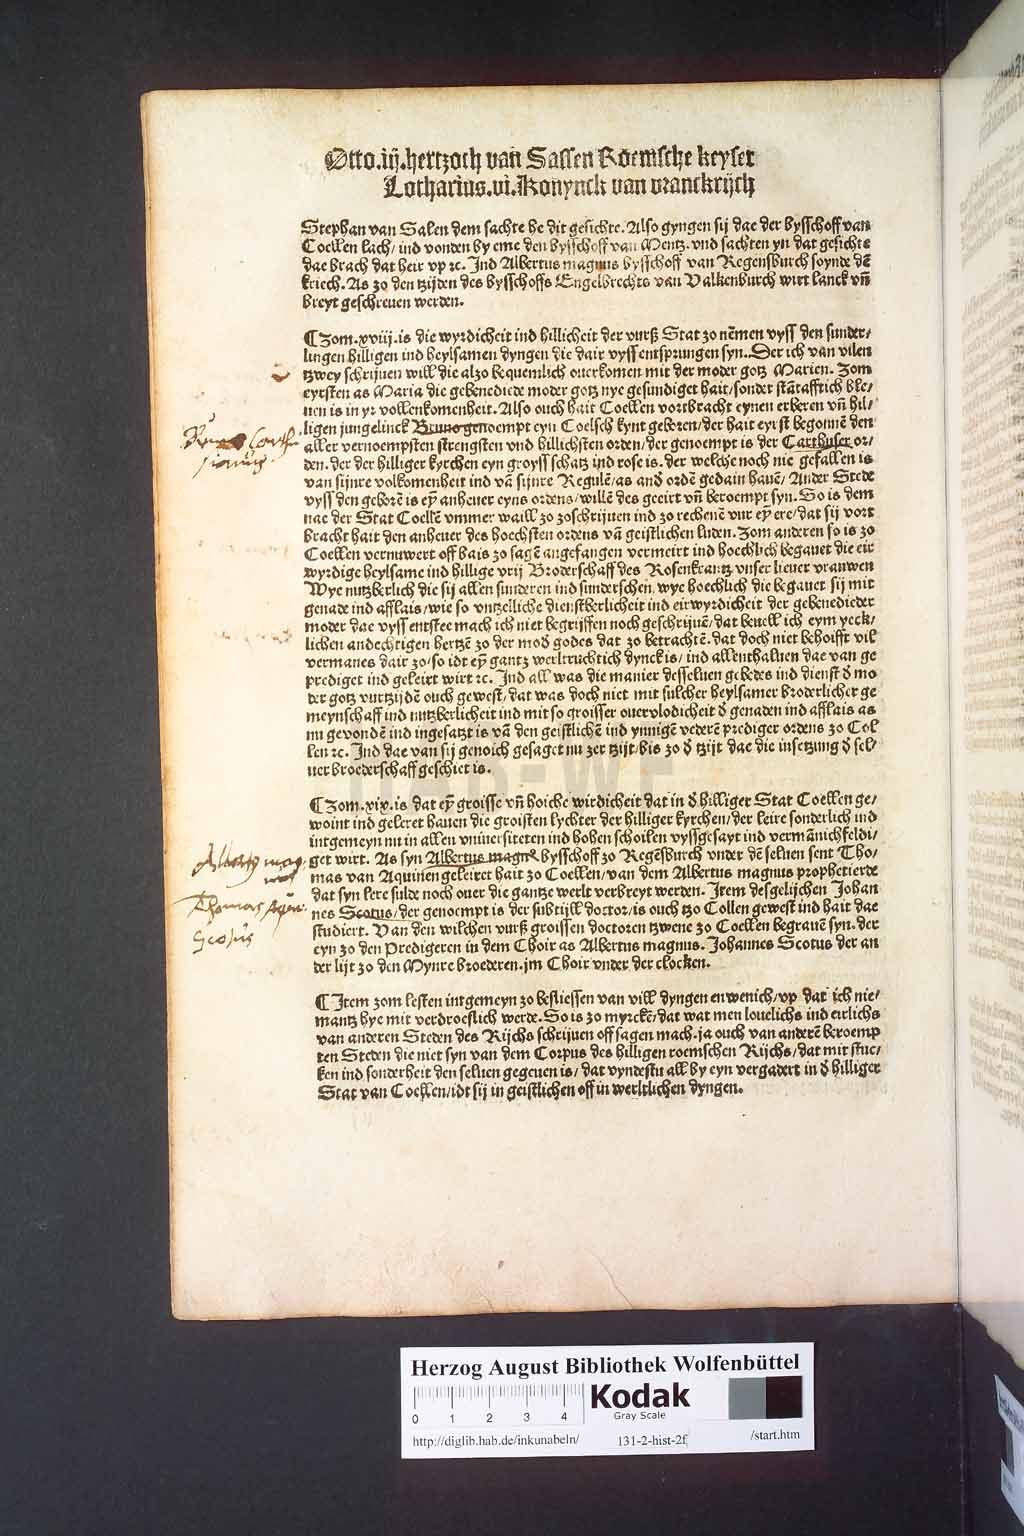 Otto.iij.hertzoch van Sassen Roemsche keyser
Lotharius.vi.Konynck van vranckrijch
Stephan van Salen dem sachte he dit gesichte. Also gyngen sij dae der bysschoff van
Coellen lach/ ind vonden by eme den bysschoff van Mentz. vnd sachten yn dat gesichte
dae brach dat heir vp ꝛc. Ind Albertus magnus bysschoff van Regensburch soynde dē
kriech. As zo den tzijden des bysschoffs Engelbrechts van Valkenburch wirt lanck vñ
breyt geschreuen werden.
¶Zom.xviij.is die wyrdicheit ind hillicheit der vurß Stat zo nēmen vyss den sunder/
lingen hilligen ind heylsamen dyngen die dair vyss entsprungen syn..Der ich van vilen
tzwey schrijuen will die alzo bequemlich ouerkomen mit der moder gotz Marien. Zom
eyrsten as Maria die gebenediede moder gotz nye gesundiget hait/ sonder stātafftich ble/
uen is in yr vollenkomenheit. Also ouch hait Coellen vortbracht eynen erberen vñ hil/
ligen jungelinck Bruno genoempt eyn Coelsch kynt geboren/ der hait eyrst begonnē den
aller vernoempsten strengsten vnd hillichsten orden/ der genoempt is der Carthuser or/
den. der der hilliger kyrchen eyn groyss schatz ind rose is. der welche noch nie gefallen is
van sijnre volkomenheit ind vā sijnre Regulē/ as and ordē gedain hauē/ Ander Stede
vyss den geborē is eȳ anheuer eyns ordens/ willē des geeirt vñ beroempt syn. So is dem
nae der Stat Coellē vmmer waill zo zoschrijuen ind zo rechenē vur eȳ ere/ dat sij vort
bracht hait den anheuer des hoechsten ordens vā geistlichen luden. Zom anderen so is zo
Coellen vernuwert off bais zo sagē angefangen vermeirt ind hoechlich begauet die eir
wyrdige heylsame ind hillige vrij Broderschaff des Rosenkrantz vnser lieuer vrauwen
Wye nutzberlich die sij allen sunderen ind sunderschen. wye hoechlich die begauet sij mit
genade ind afflais/ wie so vntzelliche dienstberlicheit ind eirwyrdicheit der gebenedieder
moder dae vyss entstee mach ich niet begrijffen noch geschrijuē/ dat beuell ich eym yeck/
lichen andechtigen hertzē zo der mod godes dat zo betrachtē. dat doch niet behoifft vil
vermanes dair zo/ so idt eȳ gantz werltruchtich dynck is/ ind allenthaluen dae van ge
prediget ind geleirt wirt ꝛc. Ind all was die manier desseluen gebedes ind dienst d mo
der gotz vurtzijdē ouch gewest/ dat was doch niet mit sulcher heylsamer broderlicher ge
meynschaff ind nutzberlicheit ind mit so groisser ouervlodicheit d genaden ind afflais as
nu gevondē ind ingesatzt is vā den geistlichē ind ynnigē vederē prediger ordens zo Col
len ꝛc. Ind dae van sij genoich gesaget nu zer tzijt/ bis zo d tzijt dae die insetzung d sel/
uer broederschaff geschiet is.
¶Zom.xix.is dat eȳ groisse vñ hoiche wirdicheit dat in d hilliger Stat Coellen ge/
woint ind geleret hauen die groisten lychter der hilliger kyrchen/ der leire sonderlich ind
intgemeyn nu in allen vniuersiteten ind hohen schoilen vyssgesayt ind vermānichfeldi/
get wirt. As syn Albertus magnꝰ bysschoff zo Regēsburch vnder dē seluen sent Tho/
mas van Aquinen geleiret hait zo Coellen/ van dem Albertus magnus prophetierde
dat syn lere sulde noch ouer die gantze werlt verbreyt werden. Item desgelijchen Johan
nes Scotus/ der genoempt is der subtijll doctor/ is ouch tzo Collen gewest ind hait dae
studiert. Van den wilchen vurß groissen doctoren tzwene zo Coellen begrauē syn. der
eyn zo den Predigeren in dem Choir as Albertus magnus. Johannes Scotus der an
der lijt zo den Mynre broederen.jm Choir vnder der clocken.
¶Item zom lesten intgemeyn zo besliessen van vill dyngen en wenich/ vp dat ich nie/
mantz hye mit verdroeslich werde. So is zo myrckē/ dat wat men louelichs ind eirlichs
van anderen Steden des Rijchs schrijuen off sagen mach. ja ouch van anderē beroemp
ten Steden die niet syn van dem Corpus des hilligen roemschen Rijchs/ dat mit stuc/
ken ind sonderheit den seluen gegeuen is/ dat vyndestu all by eyn vergadert in d hilliger
Stat van Coellen/ idt sij in geistlichen off in werltlichen dyngen.
Thomas Aqui.
Scotus
Herzog August Bibliothek Wolfenbüttel
0 1 2 3 4
Kodak
Gray Scale
http://diglib.hab.de/inkunabeln/ 131-2-hist-2f /start.htm